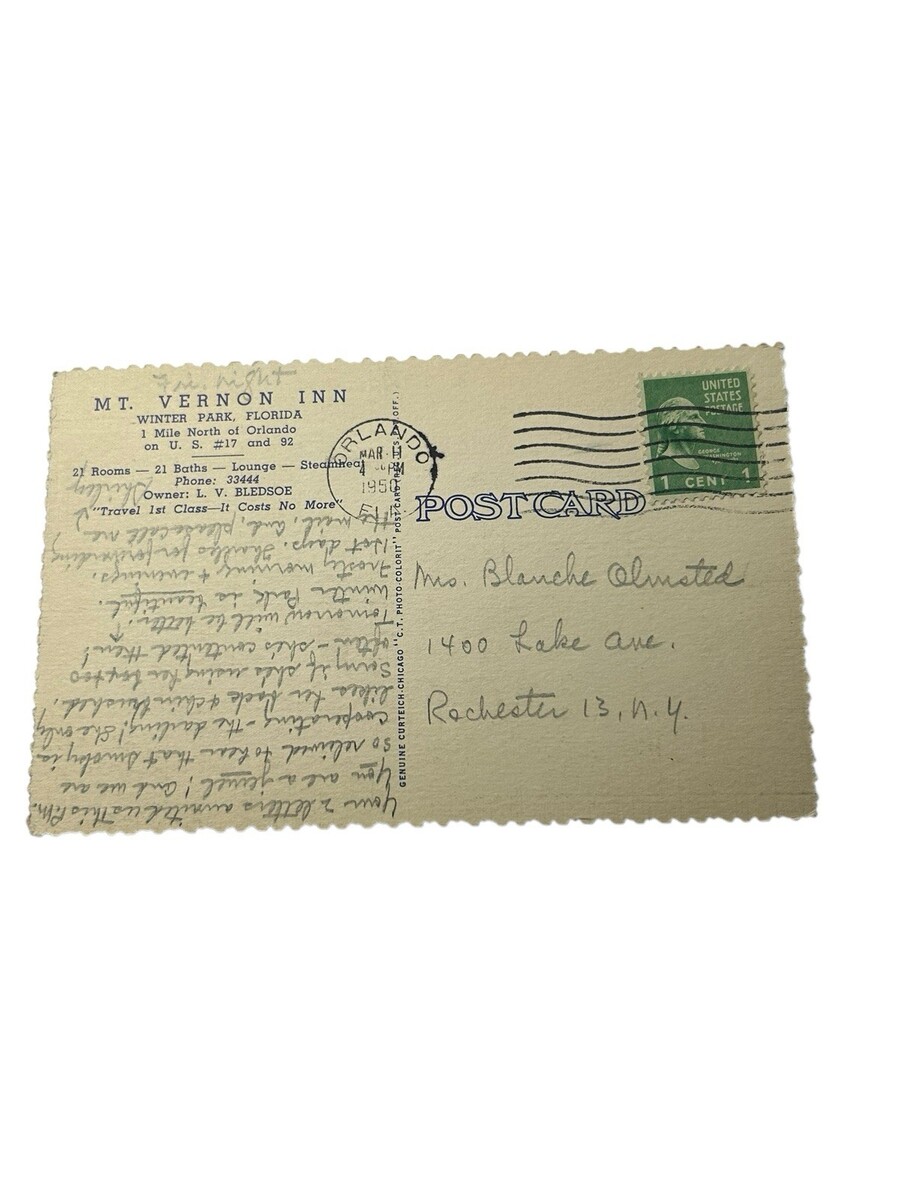 MT. VERNON INN
WINTER PARK, FLORIDA
1 Mile North of Orlando
on U. S. #17 and 92
21 Rooms — 21 Baths — Lounge — Steamheat
Phone: 33444
Owner: L. V. BLEDSOE
"Travel 1st Class—It Costs No More"
GENUINE CURTEICH-CHICAGO "C. T. PHOTO-COLORIT" POST CARD (REG. U.S. PAT. OFF.)
ORLANDO
MAR
PM
1950
UNITED
STATES
POSTAGE
GEORGE
WASHINGTON
1 CENT 1
POST CARD
Mrs. Blanche Olmsted
1400 Lake Ave.
Rochester 13, N.Y.
Your 2 letters awaited us this P.M.
You are a jewel! And we are
so relieved to hear that Smoky is
cooperating - the darling! She only
likes her back & chin brushed.
Sorry if she's using her box too
often - she's contented then!
Tomorrow will be better!
Winter Park is beautiful.
Frosty morning & evenings.
Hot days. Thanks for forwarding
the mail, and, please call me,
Shirley